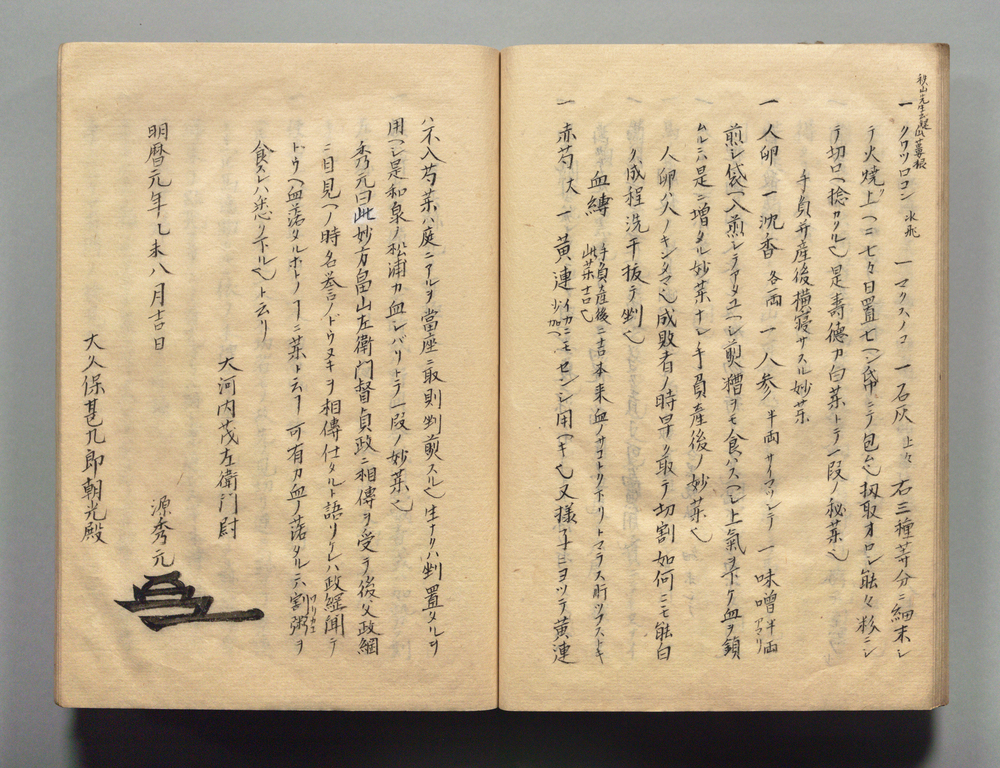 秋山先生云是瓜蔞根
一 クワツロコン 水飛 一 マツスノコ 一 石灰 上々 右三種等分ニ細末シ
テ火焼上ヘニ七々日置七ヘン帋ニテ包ム也扨取オロシ能々粉ニシ
テ切口ヘ捻カクル也是寿徳カ白薬トテ一段ノ秘薬也
手負并産後横寝サスル妙薬
一 人卵 一 沈香 各両 一 人参 半両 サイマツシテ 一 味噌 半両アマリ
煎シ袋ヘ入煎シテアタユヘシ煎糟ヲモ食ハスヘシ上氣ヲ下ケ血ヲ鎮
ムル叓是ニ増タル妙薬ナシ手負産後ノ妙薬也
人卵ハ人ノキンタマ也成敗者ノ時早ク取テ切割如何ニモ能白
ク成程洗干抜テ刣也
血縛 手負産後ニ吉本来血ノサコトリ下リトマラス肝ツブストキ此薬吉也
一 赤芍 大 一 黄連 少 イカニモセンシ用ヘキ也又様子ニヨツテ黄連
ハ不入芍薬ハ庭ニアルヲ當座ニ取則刣煎スル也生ナクハ刣置タルヲ
用ヘシ是和泉ノ松浦カ血シバリトテ一段ノ妙薬也
秀元曰此妙方畠山左衛門督貞政ニ相傳ヲ受テ後父政綱
ニ目見ヘノ時名誉ノドウヌキヲ相傳仕タルト語リケレハ政經聞テ
トウヘ血落タルホトノ叓ニ薬ト云叓可有カ血ノ落タル叓割粥ヲ
食スレハ悉ク下ル也ト云リ
大河内茂左衛門尉
明暦元年乙未八月吉日
源秀元
大久保甚兀郎朝光殿